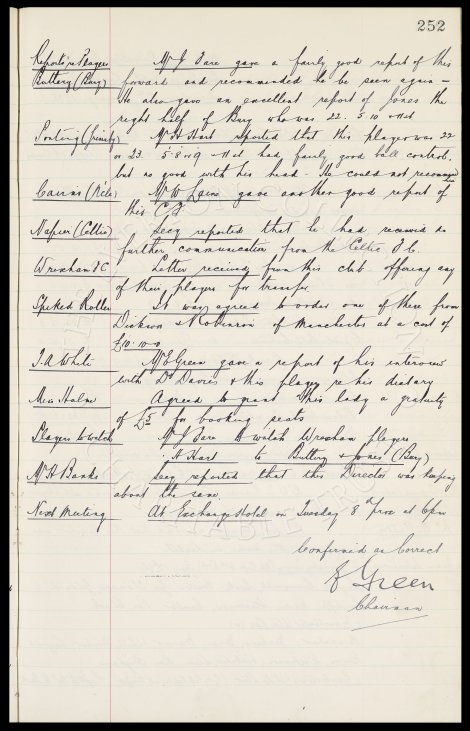 252
Reports re Players Mr J Fare gave a fairly good report of this
Buttery (Bury) forward and recommended he be seen again –
He also gave an excellent report of Jones the
right half of Bury who was 22. 5.10
Ponting (Grimsby) Mr A Hart reported that this player was 22
or 23. 5.8 had fairly good ball control,
but no good with his head – He could not recommend
Cairns (Rale) Mr W gave another good report of
this C.F
Napier (Celtic) Secy reported that he had received no
further communication from the Celtic F.C.
Wrexham F.C Letter received from this club offering any
of their players for transfer
Spiked Roller It was agreed to order one of these from
Dickson & Robinson of Manchester at a cost of
£10.10.0
J.A White Mr E Green gave a report of his interview
with Dr Davies & this player re his dietary
Miss Holme Agreed to grant this lady a gratuity
of £5 for booking seats
Players to watch Mr J Fare to watch Wrexham players
" A Hart to Buttery & Jones (Bury)
Mr H Banks Secy reported that this Director was keeping
about the same.
Next Meeting At Exchange Hotel on Tuesday 8th prox at 6pm
Confirmed as Correct
E Green
Chairman